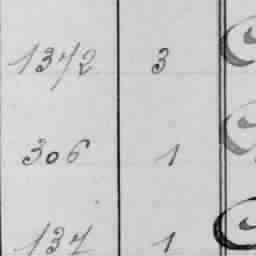 1372 3
306 1
137 1